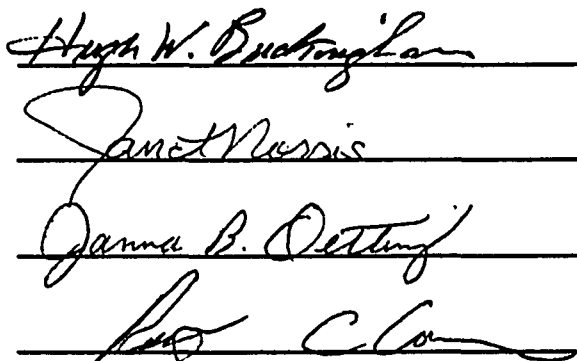 Hugh W. Buckingham
Janet Norris
Janna B. Oetting
C.